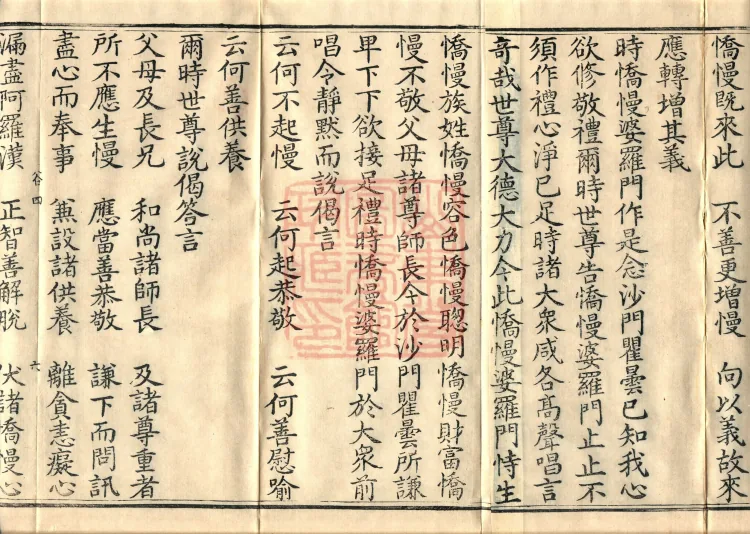 憍慢既來此　不善更增慢　向以義故來
應轉增其義
時憍慢婆羅門作是念沙門瞿曇已知我心
欲修敬禮爾時世尊告憍慢婆羅門止止不
須作禮心淨已足時諸大眾咸各高聲唱言
奇哉世尊大德大力今此憍慢婆羅門恃生
憍慢族姓憍慢容色憍慢聰明憍慢財富憍
慢不敬父母諸尊師長今於沙門瞿曇所謙
卑下下欲接足禮時憍慢婆羅門於大眾前
唱令靜默而說偈言
云何不起慢　云何起恭敬　云何善慰喻
云何善供養
爾時世尊說偈答言
父母及長兄　和尚諸師長　及諸尊重者
所不應生慢　應當善恭敬　謙下而問訊
盡心而奉事　兼設諸供養　離貪恚癡心
谷四　六
漏盡阿羅漢　正智善解脫　伏諸憍慢心